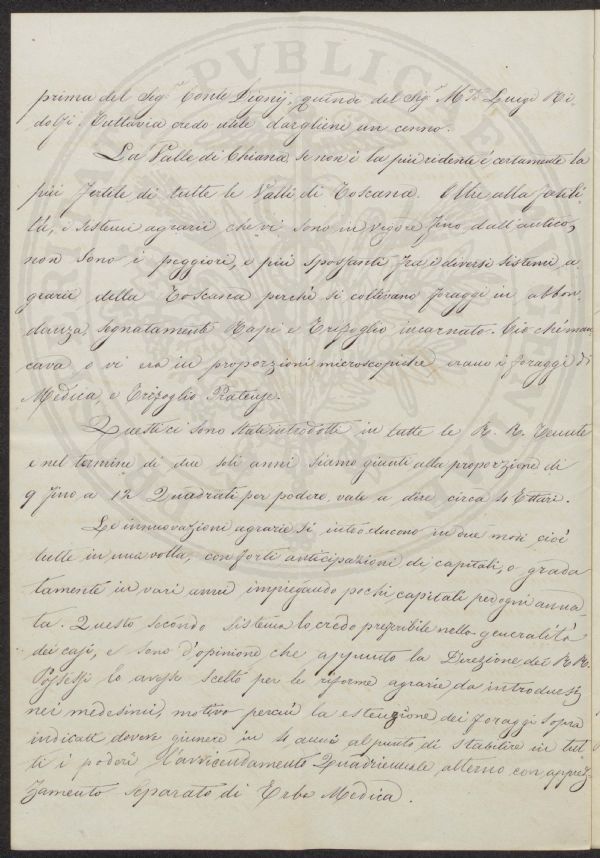 prima del Sig.r Conte Digny, quindi del Sig.r M.se Luigi Ri-
dolfi. Tuttavia credo utile dargliene un cenno.
La Valle di Chiana se non è la più ridente è certamente la
più fertile di tutte le Valli di Toscana. Oltre alla fertili-
tà, i sistemi agrarii che vi sono in vigore fino dall'antico,
non sono i peggiori, e più spossanti fra i diversi sistemi a-
grarii della Toscana perchè si coltivano foraggi in abbon-
danza, segnatamente Rape e Trifoglio incarnato. Ciò che man-
cava o vi era in proporzioni microscopiche erano i foraggi di
Medica, e Trifoglio Pratense.
Questi ci sono stati introdotti in tutte le R. R. Tenute
e nel termine di due soli anni siamo giunti alla proporzione di
9 fino a 12 Quadrati per podere, vale a dire circa 4 Ettari.
Le innovazioni agrarie si introducono in due modi cioè
tutte in una volta, con forti anticipazioni di capitali, o grada
tamente in vari anni impiegando pochi capitali per ogni anna
ta. Questo secondo sistema lo credo preferibile nella generalità
dei casi, e sono d'opinione che appunto la Direzione dei R. R.
Possessi lo avesse scelto per le riforme agrarie da introdursi
nei medesimi, motivo perciò la estensione dei foraggi sopra
indicati dovere giungere in 4 anni al punto di stabilire in tut
ti i poderi l'avvicendamento Quadriennale alterno con appez-
zamento separato di Erba Medica.